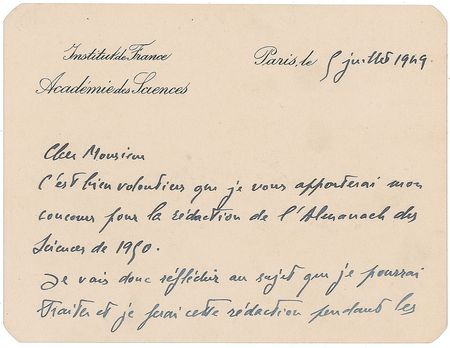 Institut de France
Paris, le 5 juillet 1949.
Académie des Sciences
Cher Monsieur
C'est bien volontiers que je vous apporterai mon
concours pour la rédaction de l'Almanach des
Sciences de 1950.
Je vais donc réfléchir au sujet que je pourrai
traiter et je ferai cette rédaction pendant les